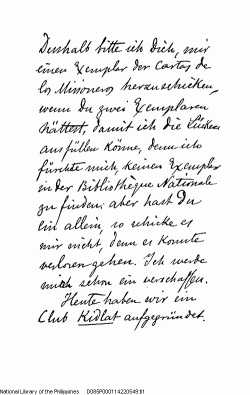 Deshalb bitte ich dich, mir
einen Exemplar der Cartas de
los Missioneros herauschicken,
wenn du zwei Exemplaren
hättest, damit ich die Lücken
ausfüllen könne, denn ich
fürchte mich, keinen Exemplar
in der Bibliothèque Nationale
zu finden; aber hast Du
ein allein, so schicke es
mir nicht, denn es konnte
verloren gehen. Ich werde
mich sehn ein verschaffen.
Heute haben wir ein
Club Kidlat aufgegründet.
National Library of the Philippines D085P000114220549;81